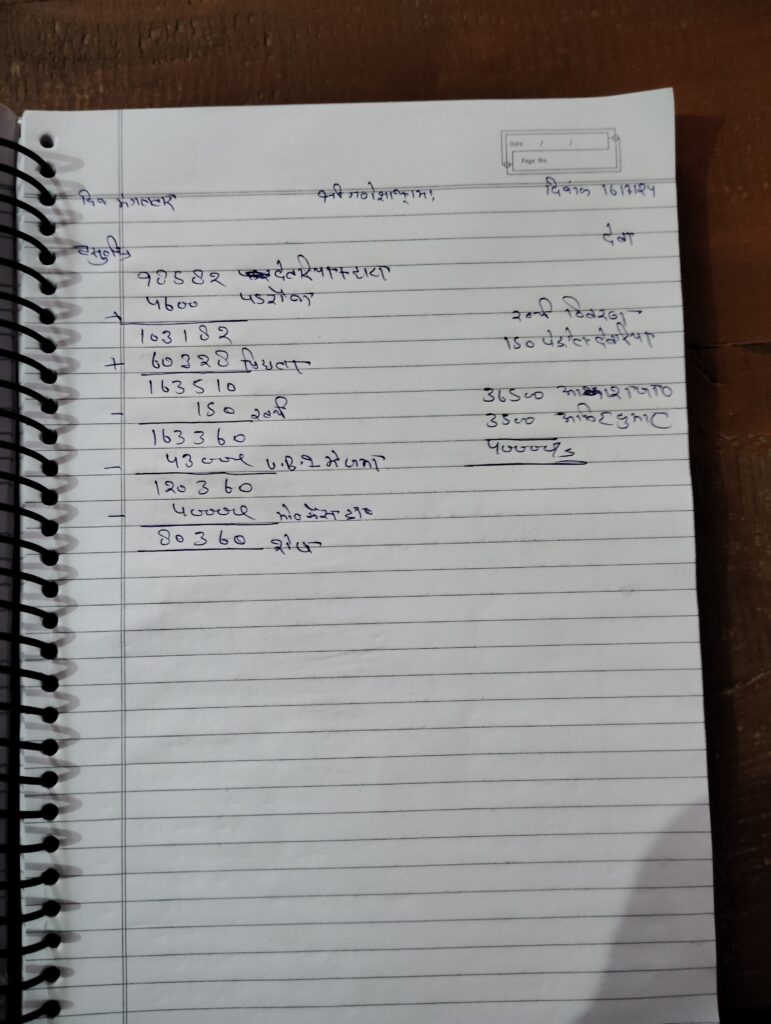 Date / /
Page No.
दिन मंगलवार श्री गणेशाय नमः दिनांक 16/7/24
देना
वसूली
98582 देवरिया
+ 4600 पडरौना
103182 खर्च विवरण
+ 60328 पिछला 150 पेट्रोल देवरिया
163510
- 150 खर्च 36500
163360 3500 कुमार
- 43000 40000
120360
- 40000
80360 शेष